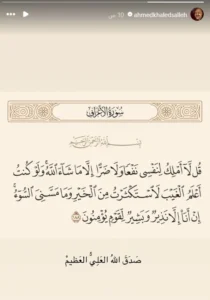 ahmedkhaledsalleh 10 س
سورة الأعراف
بسم الله الرحمن الرحيم
قُل لَّآ أَمۡلِكُ لِنَفۡسِي نَفۡعٗا وَلَا ضَرًّا إِلَّا مَا شَآءَ ٱللَّهُۚ وَلَوۡ كُنتُ
أَعۡلَمُ ٱلۡغَيۡبَ لَٱسۡتَكۡثَرۡتُ مِنَ ٱلۡخَيۡرِ وَمَا مَسَّنِيَ ٱلسُّوٓءُۚ
إِنۡ أَنَا۠ إِلَّا نَذِيرٞ وَبَشِيرٞ لِّقَوۡمٖ يُؤۡمِنُونَ ١٨٨
صَدَقَ اللهُ العَلِيُّ العَظِيمُ